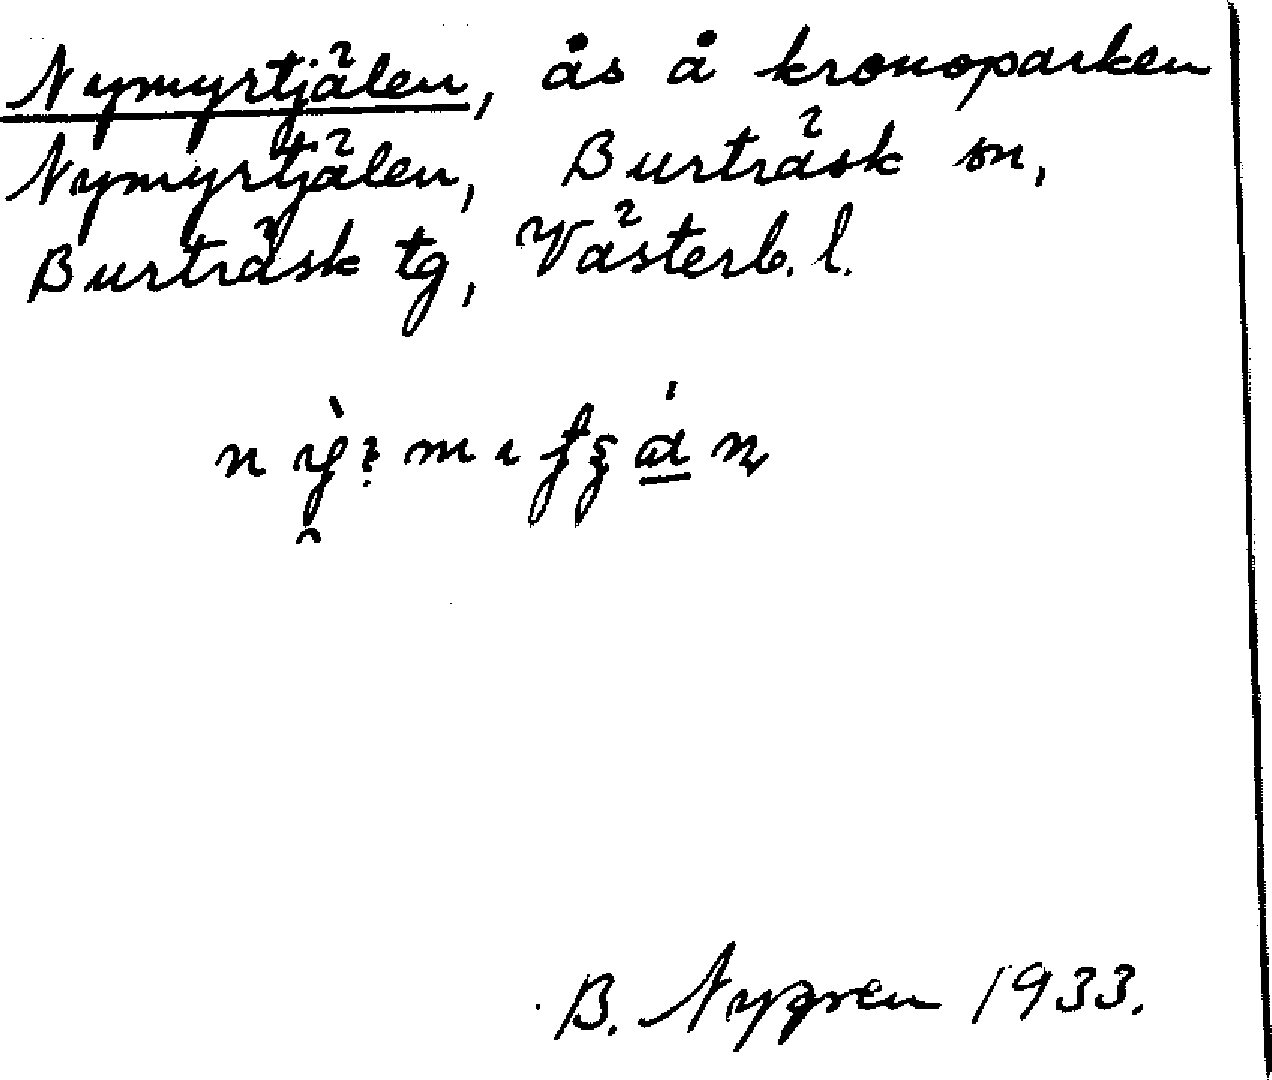 Nymyrtjälen, ås å kronoparken
Nymyrtjälen, Burträsk sn,
Burträsk tg, Västerb. l.
B. Nygren 1933.